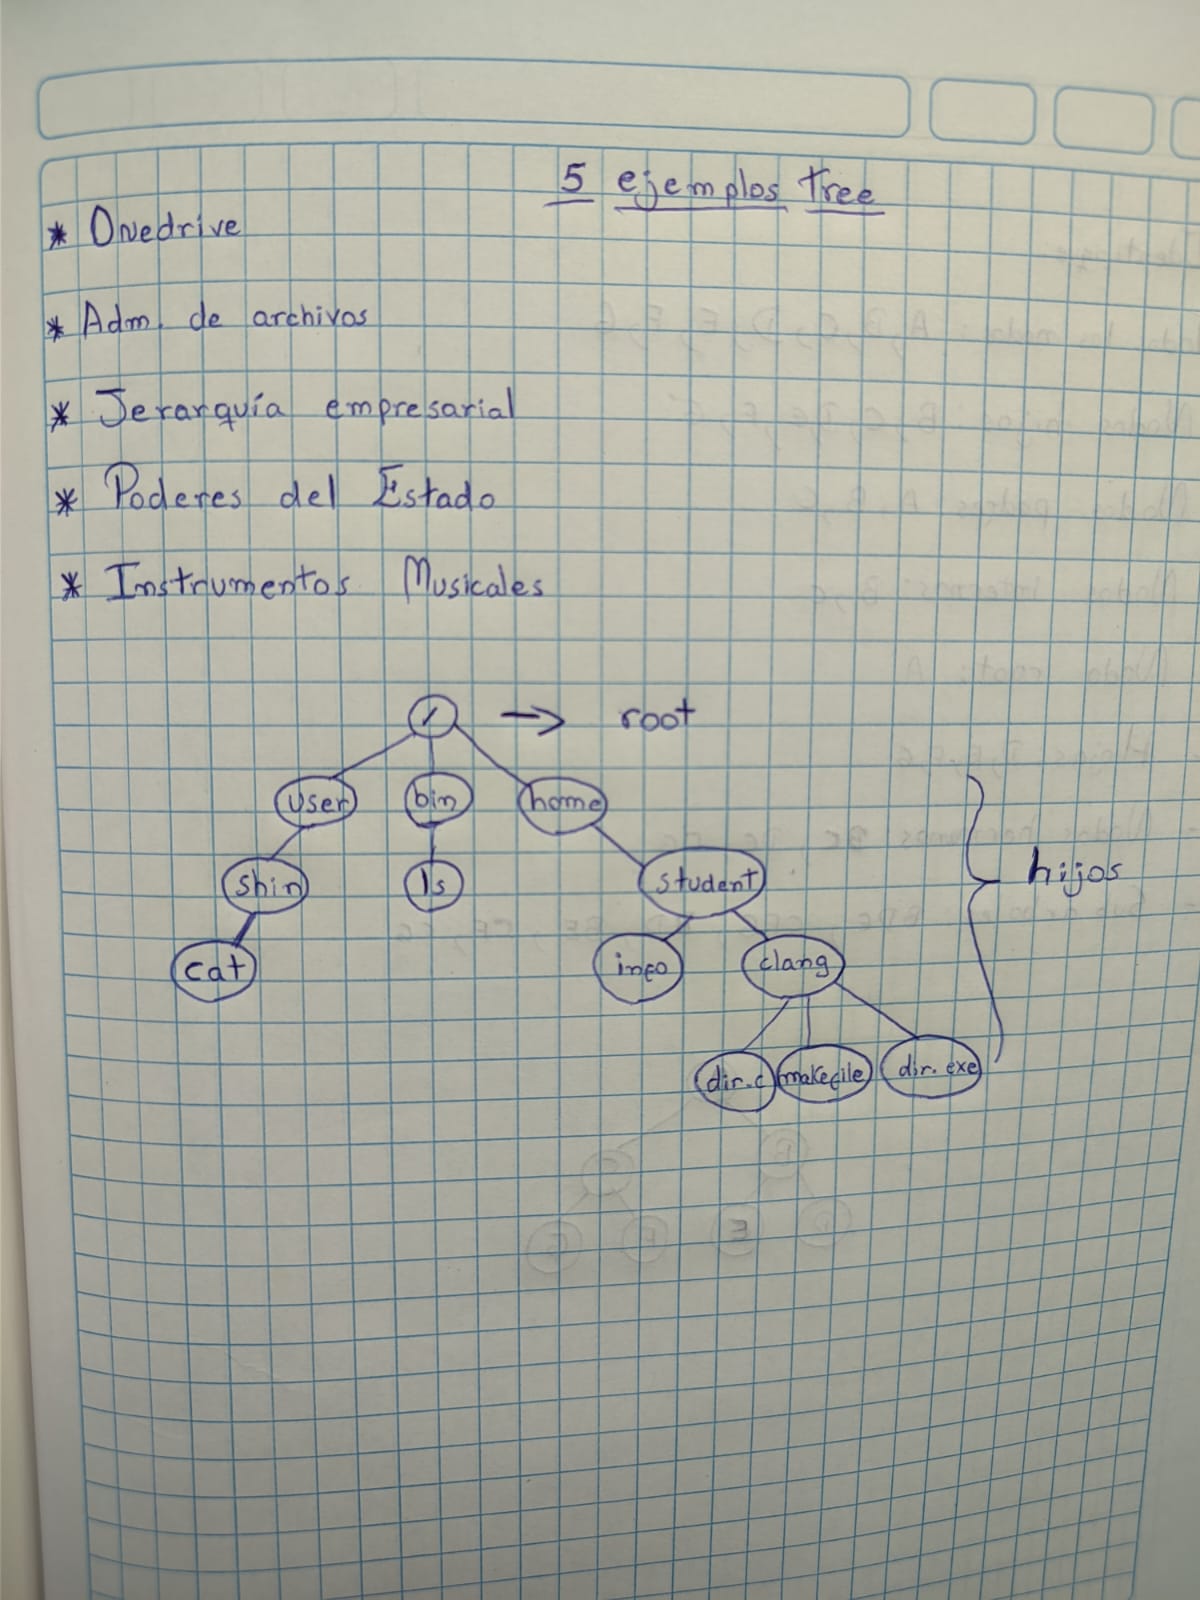 5 ejemplos tree
* Onedrive
* Adm. de archivos
* Jerarquía empresarial
* Poderes del Estado
* Instrumentos Musicales
/ → root
user bin home
shin ls student
hijos
cat info clang
dir.c makefile dir.exe